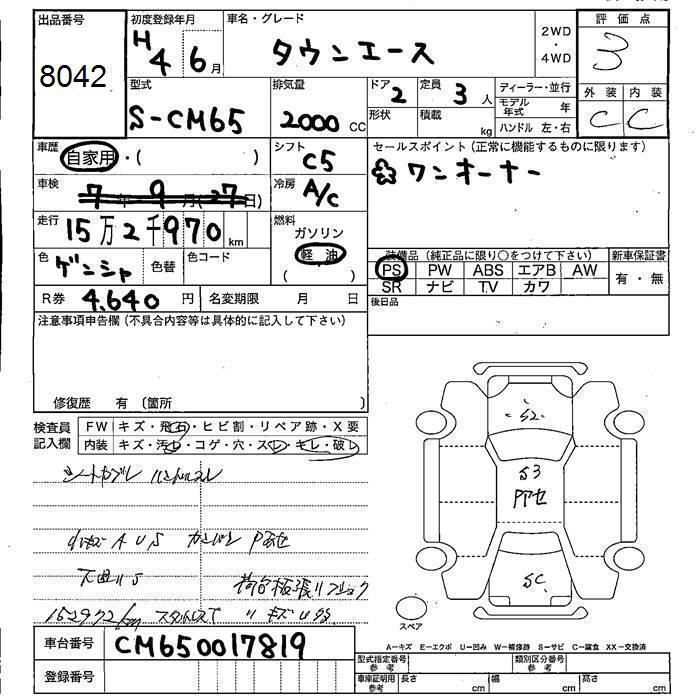 出品番号
8042
初度登録年月
H4 6月
車名・グレード
タウンエース
2WD
・
4WD
評価点
3
型式
S-CM65
排気量
2000 CC
ドア 2
形状
定員 3 人
積載 kg
ディーラー・並行
モデル年式 年
ハンドル 左・右
外装 内装
C C
車歴
自家用・( )
シフト
C5
セールスポイント(正常に機能するものに限ります)
ワンオーナー
車検
7年 9月(27日)
冷房
A/C
走行
15万2千970 km
燃料
ガソリン
軽油
( )
色 ゲンシャ
色替
色コード
装備品(純正品に限り○をつけて下さい)
PS PW ABS エアB AW
SR ナビ T.V カワ
新車保証書
有・無
R券 4,640 円
名変期限 月 日
後日品
注意事項申告欄(不具合内容等は具体的に記入して下さい)
修復歴 有 〔箇所 〕
検査員
記入欄
FW キズ・飛石・ヒビ割・リペア跡・X要
内装 キズ・汚レ・コゲ・穴・スレ・キレ・破レ
A U S
下回りS
荷台板張り
152972km
S2
S3
SC
スペア
車台番号
CM650017819
登録番号
A-キズ E-エクボ U-凹み W-補修跡 S-サビ C-腐食 XX-交換済
型式指定番号 参考
類別区分番号 参考
車庫証明用 参考
長さ cm
幅 cm
高さ cm